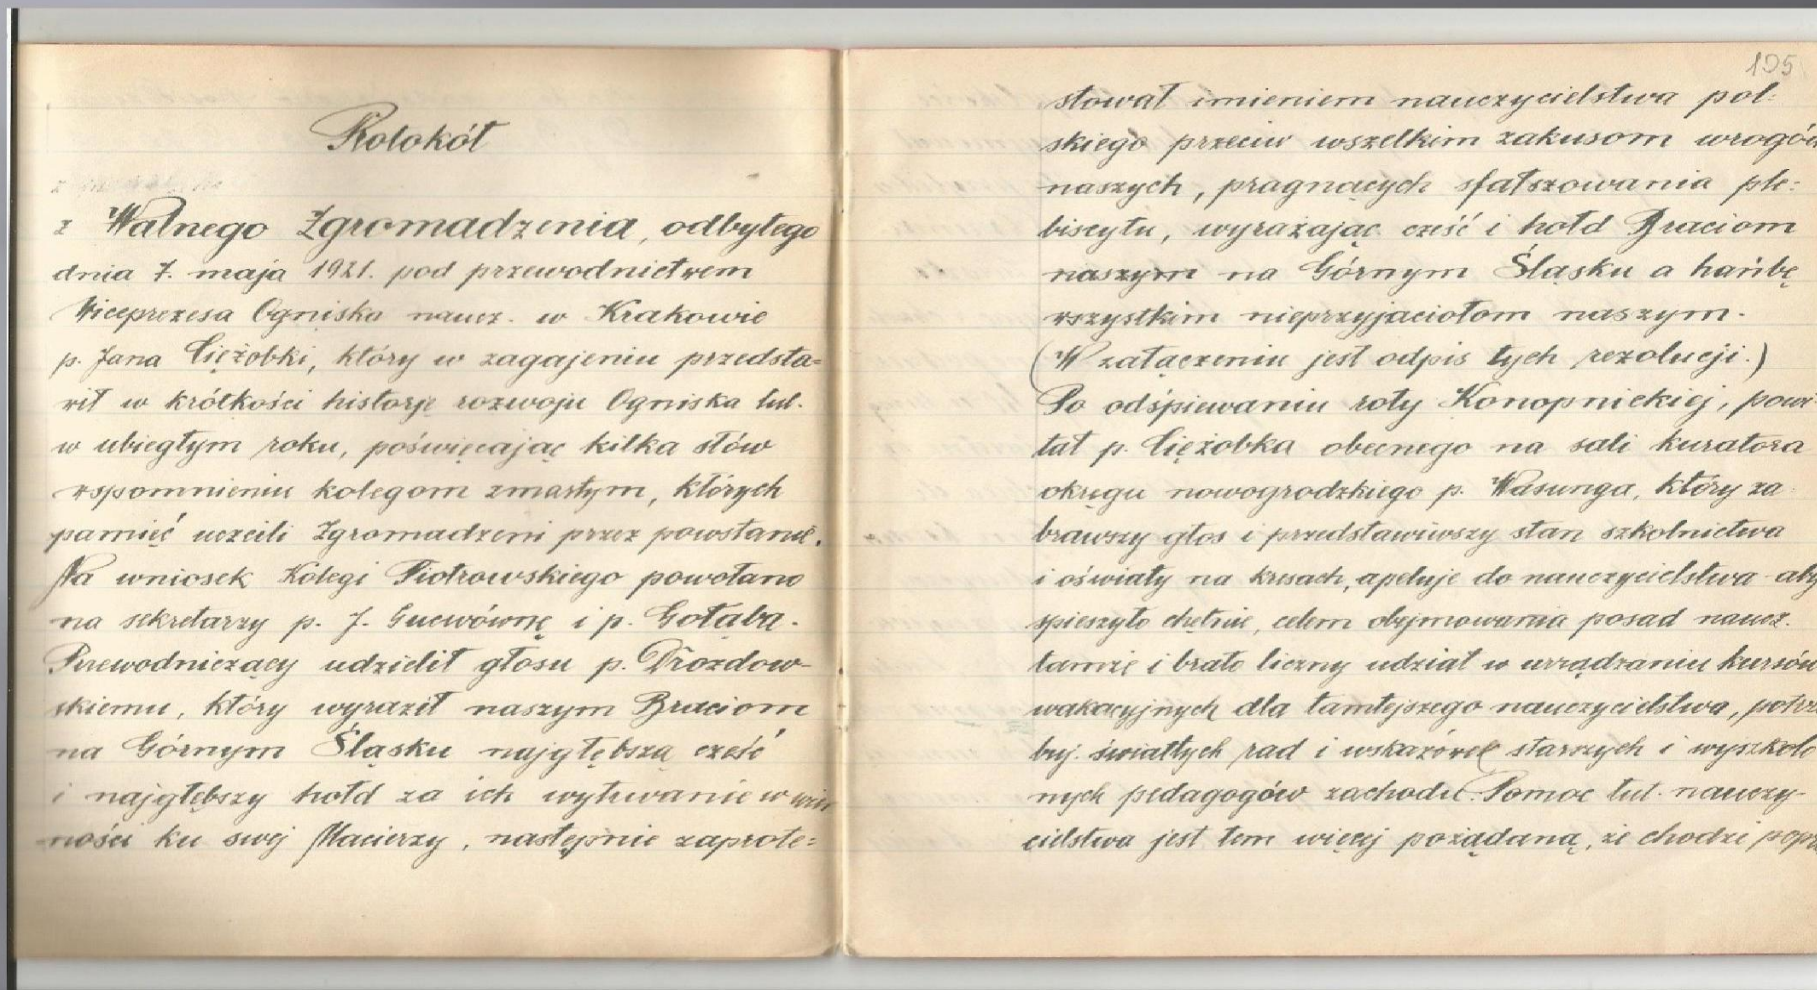 Protokół
z Walnego Zgromadzenia, odbytego
dnia 7. maja 1921. pod przewodnictwem
Wiceprezesa Ogniska naucz. w Krakowie
p. Jana Ciężobki, który w zagajeniu przedsta=
wił w krótkości historję rozwoju Ogniska tut.
w ubiegłym roku, poświęcając kilka słów
wspomnieniu kolegom zmarłym, których
pamięć uczcili Zgromadzeni przez powstanie.
Na wniosek Kolegi Piotrowskiego powołano
na sekretarzy p. J. Gucwównę i p. Gołąba.
Przewodniczący udzielił głosu p. Drozdow-
skiemu, który wyraził naszym Braciom
na Górnym Śląsku najgłębszą cześć
i najgłębszy hołd za ich wytrwanie w wier
ności ku swej Macierzy, następnie zaprote=
195
stował imieniem nauczycielstwa pol=
skiego przeciw wszelkim zakusom wrogów
naszych, pragnących sfałszowania ple=
biscytu, wyrażając cześć i hołd Braciom
naszym na Górnym Śląsku a hańbę
wszystkim nieprzyjaciołom naszym.
(W załączeniu jest odpis tych rezolucji.)
Po odśpiewaniu roty Konopnickiej, powi-
tał p. Ciężobka obecnego na sali kuratora
okręgu nowogrodzkiego p. Wasunga, który za-
brawszy głos i przedstawiwszy stan szkolnictwa
i oświaty na kresach, apeluje do nauczycielstwa aby
spieszyło chętnie, celem objmowania posad naucz.
tamże i brało liczny udział w urządzaniu kursów
wakacyjnych dla tamtejszego nauczycielstwa, potrze
buj. światłych rad i wskazówek starszych i wyszkolo
nych pedagogów zachodu. Pomoc tut. nauczy-
cielstwa jest tem więcej pożądaną, że chodzi